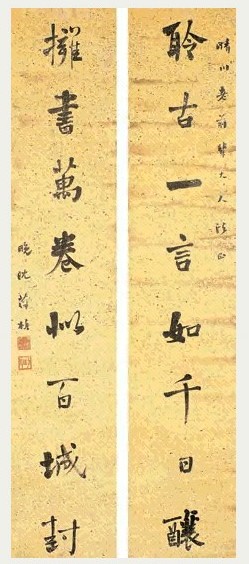 晴川老前輩大人法正
聆古一言如千日釀
擁書萬卷似百城封
晚沈